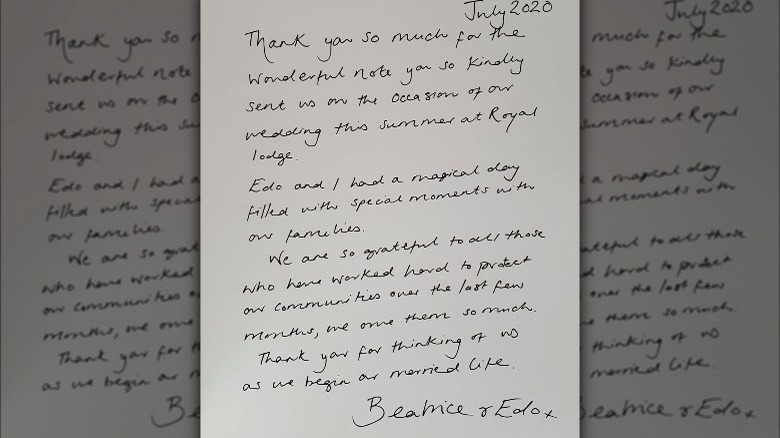 July 2020
Thank you so much for the
Wonderful note you so kindly
sent us on the occasion of our
wedding this summer at Royal
lodge.
Edo and I had a magical day
filled with special moments with
our families.
We are so grateful to all those
who have worked hard to protect
our communities over the last few
months, we owe them so much.
Thank you for thinking of us
as we begin our married life.
Beatrice & Edo x